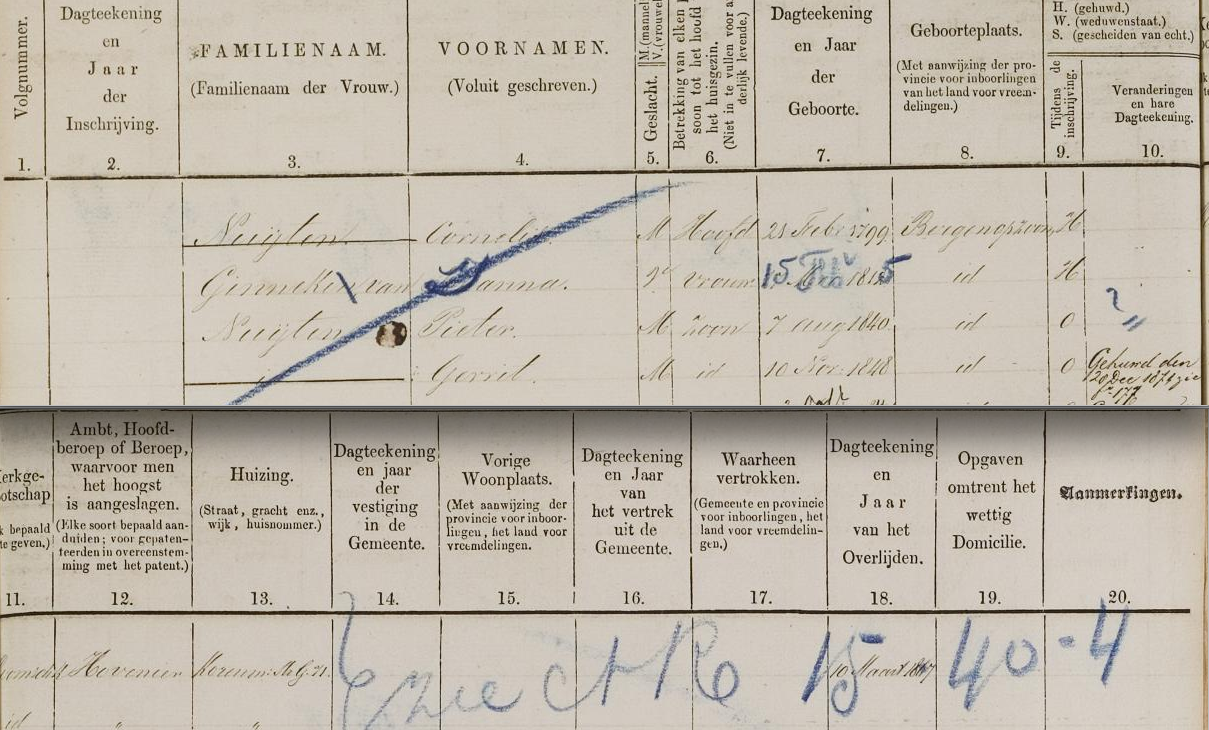 Volgnummer.
1.
Dagteekening
en
Jaar
der
Inschrijving.
2.
FAMILIENAAM.
(Familienaam der Vrouw.)
3.
VOORNAMEN.
(Voluit geschreven.)
4.
Geslacht.
M. (mannel
V. (vrouwel
5.
Betrekking van elken p
soon tot het hoofd
het huisgezin.
(Niet in te vullen voor a
derlijk levende.)
6.
Dagteekening
en Jaar
der
Geboorte.
7.
Geboorteplaats.
(Met aanwijzing der pro-
vincie voor inboorlingen
van het land voor vreem-
delingen.)
8.
H. (gehuwd.)
W. (weduwenstaat.)
S. (gescheiden van echt.)
Tijdens de
inschrijving.
9.
Veranderingen
en hare
Dagteekening.
10.
Nuijten Cornelis M Hoofd 21 Feb 1799 Bergen op zoom H
Ginneken van Janna. V vrouw 15 Feb 1815 id H
Nuijten Pieter. M Zoon 7 aug 1840 id O ? "
Gerrit. M id 10 Nov. 1848 id O Gehuwd den
20 Dec 1874 zie
fo 177
erkge-
otschap
k bepaald
te geven,)
11.
Ambt, Hoofd-
beroep of Beroep,
waarvoor men
het hoogst
is aangeslagen.
(Elke soort bepaald aan-
duiden; voor gepaten-
teerden in overeenstem-
ming met het patent.)
12.
Huizing.
(Straat, gracht enz.,
wijk, huisnommer.)
13.
Dagteekening
en jaar
der
vestiging
in de
Gemeente.
14.
Vorige
Woonplaats.
(Met aanwijzing der
provincie voor inboor-
lingen, het land voor
vreemdelingen.
15.
Dagteekening
en Jaar
van
het vertrek
uit de
Gemeente.
16.
Waarheen
vertrokken.
(Gemeente en provincie
voor inboorlingen, het
land voor vreemdelin-
gen.)
17.
Dagteekening
en
Jaar
van het
Overlijden.
18.
Opgaven
omtrent het
wettig
Domicilie.
19.
Aanmerkingen.
20.
Hovenier 10 Maart 1867
zie 15 40-4
id " "